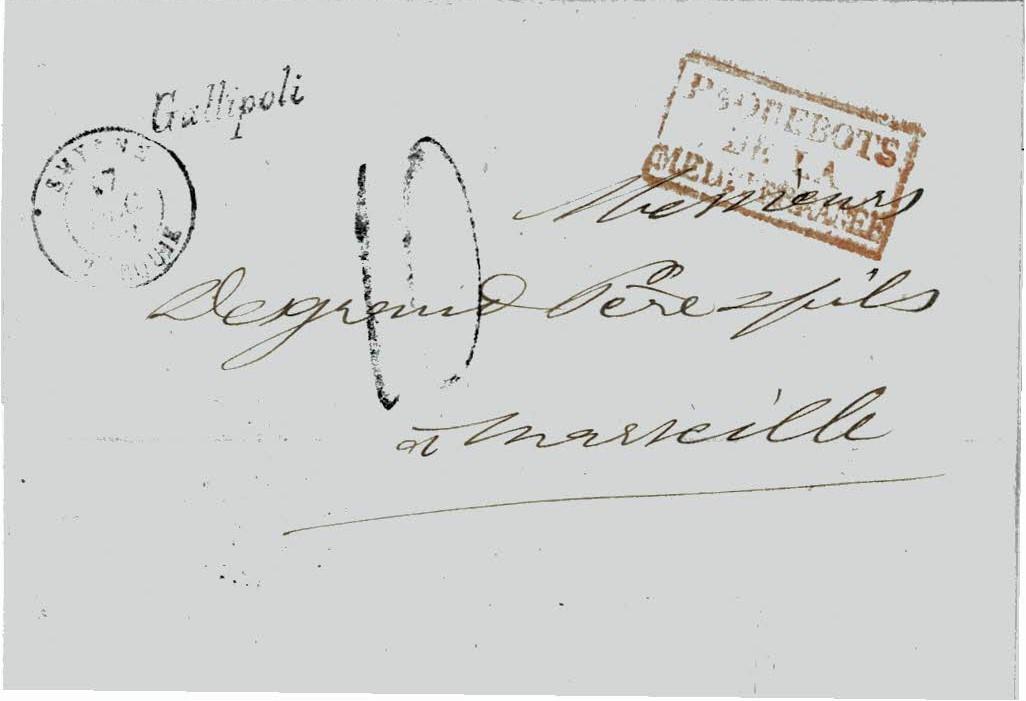 Gallipoli
SMYRNE
PAQUEBOTS
DE LA
MEDITERRANEE
10
Messieurs
Degrand Père & fils
à Marseille